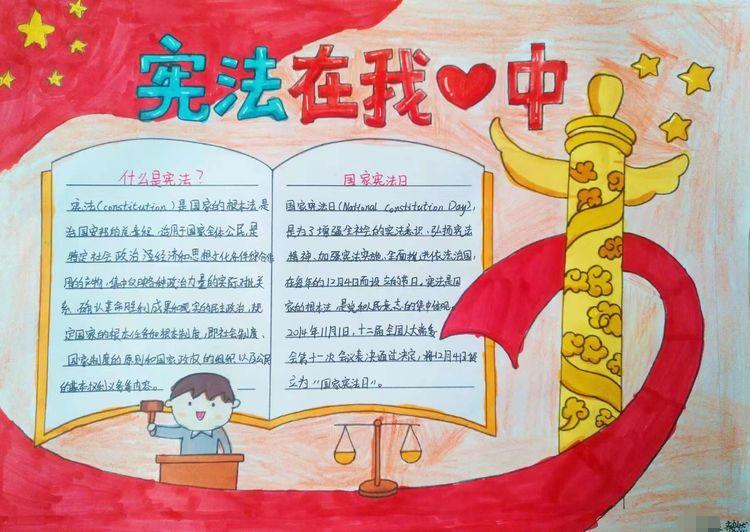 宪法在我❤中
什么是宪法？
宪法(constitution)是国家的根本法,是
治国安邦的总章程,适用于国家全体公民,是
特定社会政治经济和思想文化条件综合作
用的产物,集中反映各种政治力量的实际对比关
系,确认革命胜利成果和现实的民主政治,规
定国家的根本任务和根本制度,即社会制度、
国家制度的原则和国家政权的组织以及公民
的基本权利义务等内容。
国家宪法日
国家宪法日(National Constitution Day),
是为了增强全社会的宪法意识、弘扬宪法
精神、加强宪法实施、全面推进依法治国,
在每年的12月4日而设立的节日。宪法是国
家的根本法,是党和人民意志的集中体现。
2014年11月1日,十二届全国人大常委
会第十一次会议表决通过决定,将12月4日设
立为"国家宪法日"。